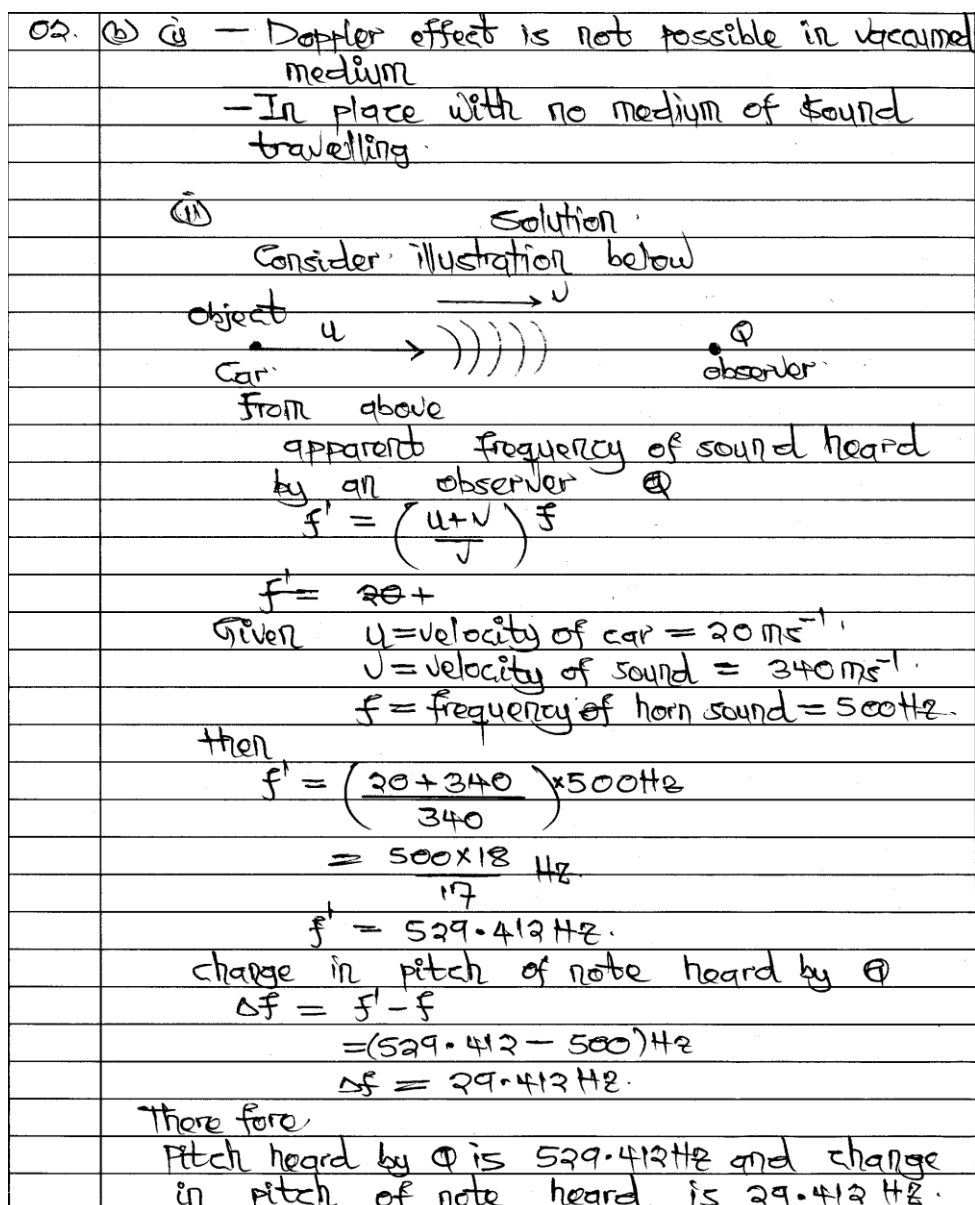 02. (b) (i) – Doppler effect is not possible in vaccumed
medium
– In place with no medium of sound
travelling.
(ii) Solution.
Consider illustration below
→ v
object u
Q
Car. observer.
From above
apparent frequency of sound heard
by an observer Q
f' = (u+v / v) f
f' = 20 +
Given u = velocity of car = 20 ms⁻¹.
v = velocity of sound = 340 ms⁻¹.
f = frequency of horn sound = 500Hz.
then
f' = (20 + 340 / 340) × 500Hz
= 500×18 / 17 Hz.
f' = 529.412 Hz.
change in pitch of note heard by Q
Δf = f' – f
= (529.412 – 500) Hz
Δf = 29.412 Hz.
There fore,
Pitch heard by Q is 529.412 Hz and change
in pitch of note heard is 29.412 Hz.